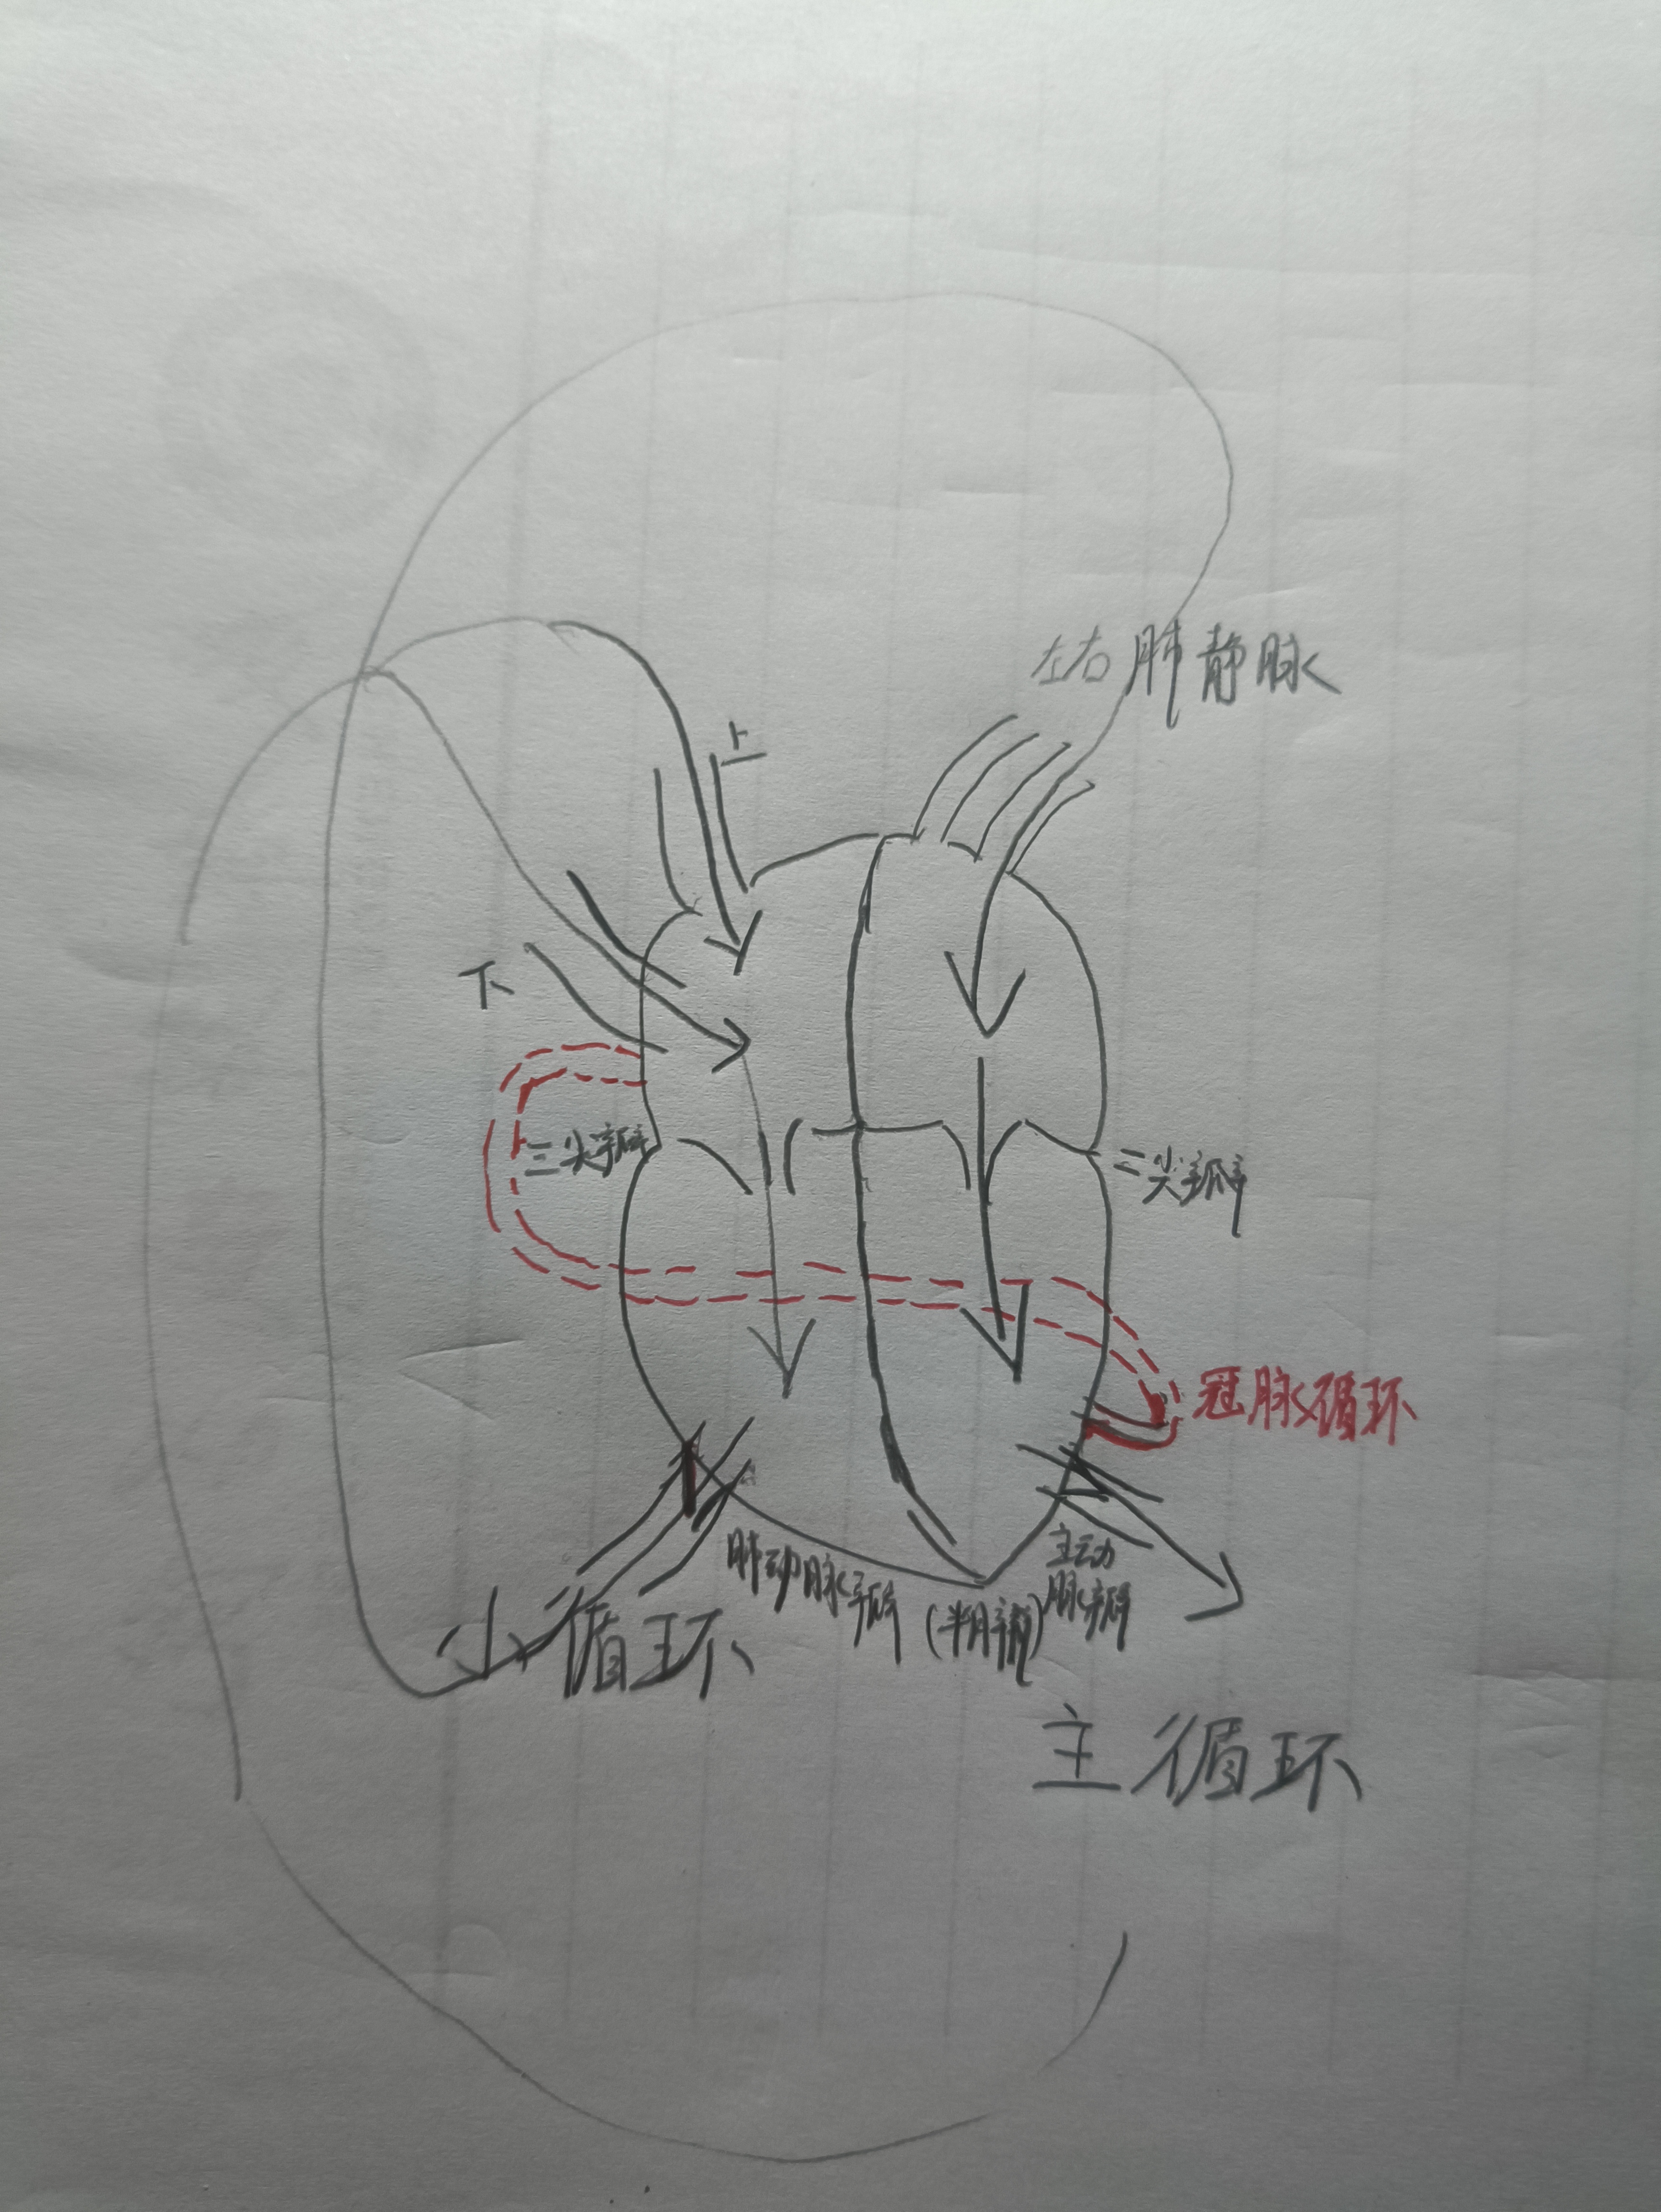 左右肺静脉
上
下
三尖瓣
二尖瓣
冠脉循环
肺动脉瓣
(半月瓣)
主动
脉瓣
小循环
主循环